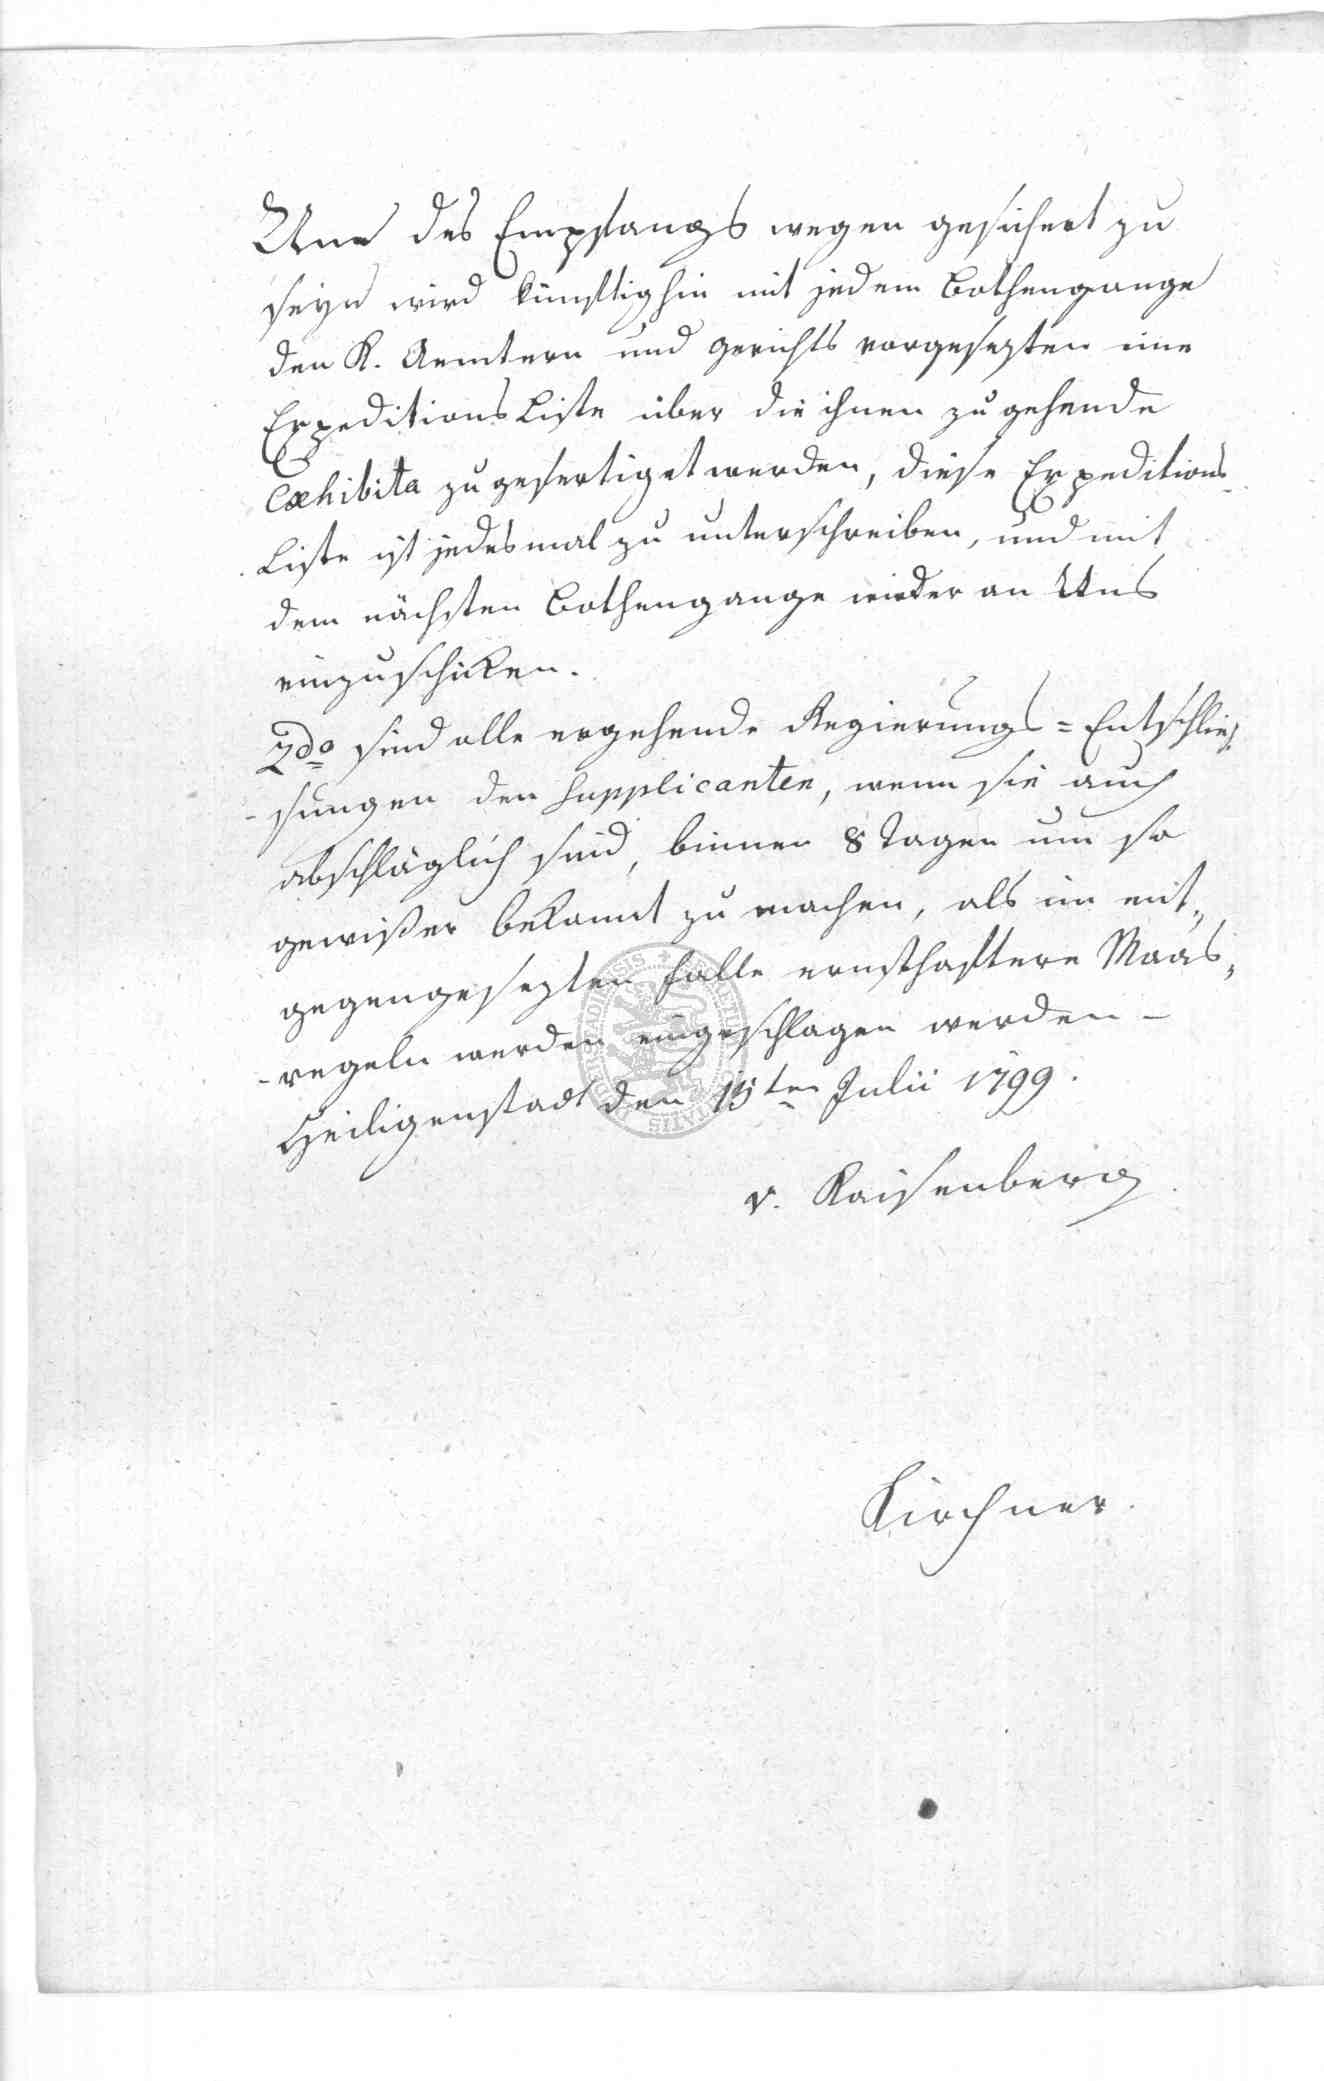 Um des Empfangs wegen gesichert zu
seyn wird künftighin mit jedem Bothengange
den K. Aemtern und gerichts vorgesezten eine
Expeditions Liste über die ihnen zu gehende
Exhibita zu gefertiget werden, diese Expeditions-
Liste ist jedesmal zu unterschreiben, und mit
dem nächsten Bothengange wieder an Uns
einzuschicken.
2do sind alle ergehende Regierungs=Entschlies-
-sungen den Supplicanten, wenn sie auch
abschläglich sind, binnen 8 Tagen um so
gewißer bekannt zu machen, als im ent„
gegengesezten Falle ernsthaftere Maas„
-regeln werden eingeschlagen werden –
Heiligenstadt den 15ten Julii 1799.
v. Kaisenberg
Kirchner.